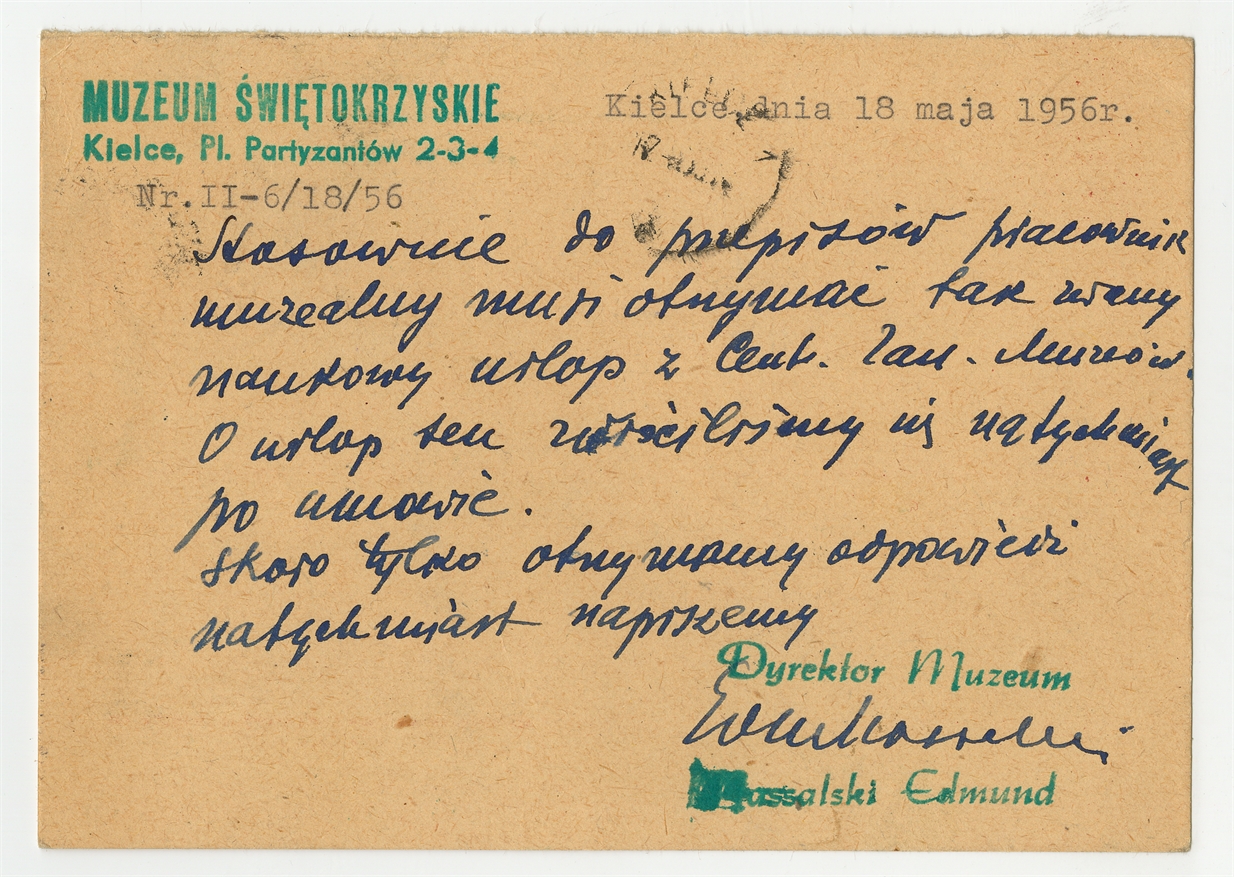 MUZEUM ŚWIĘTOKRZYSKIE
Kielce, Pl. Partyzantów 2-3-4
Kielce, dnia 18 maja 1956r.
Nr.II-6/18/56
Stosownie do przepisów pracownik
muzealny musi otrzymać tak zwany
naukowy urlop z Centr. Zarz. Muzeów.
O urlop ten zwróciliśmy się natychmiast
po umowie.
Skoro tylko otrzymamy odpowiedź
natychmiast napiszemy
Dyrektor Muzeum
Massalski Edmund